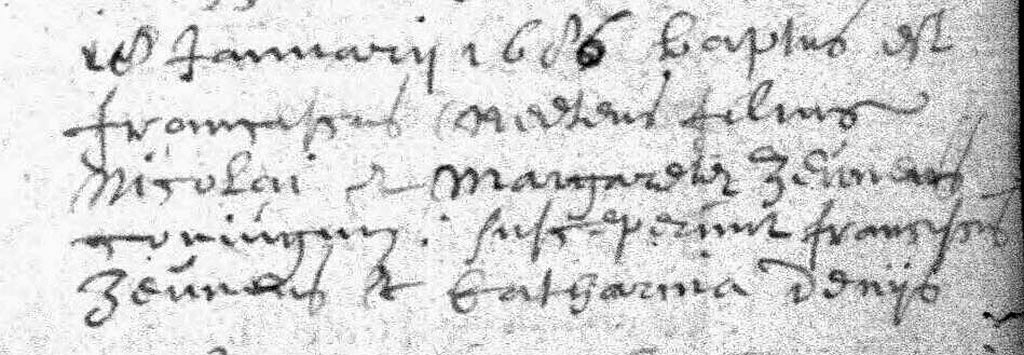 18 Januarij 1686 baptus est
franciscus Mertens filius
Nicolai et Margaretæ Zeunens
coniugum. susceperunt franciscus
Zeunens et Catharina Denijs